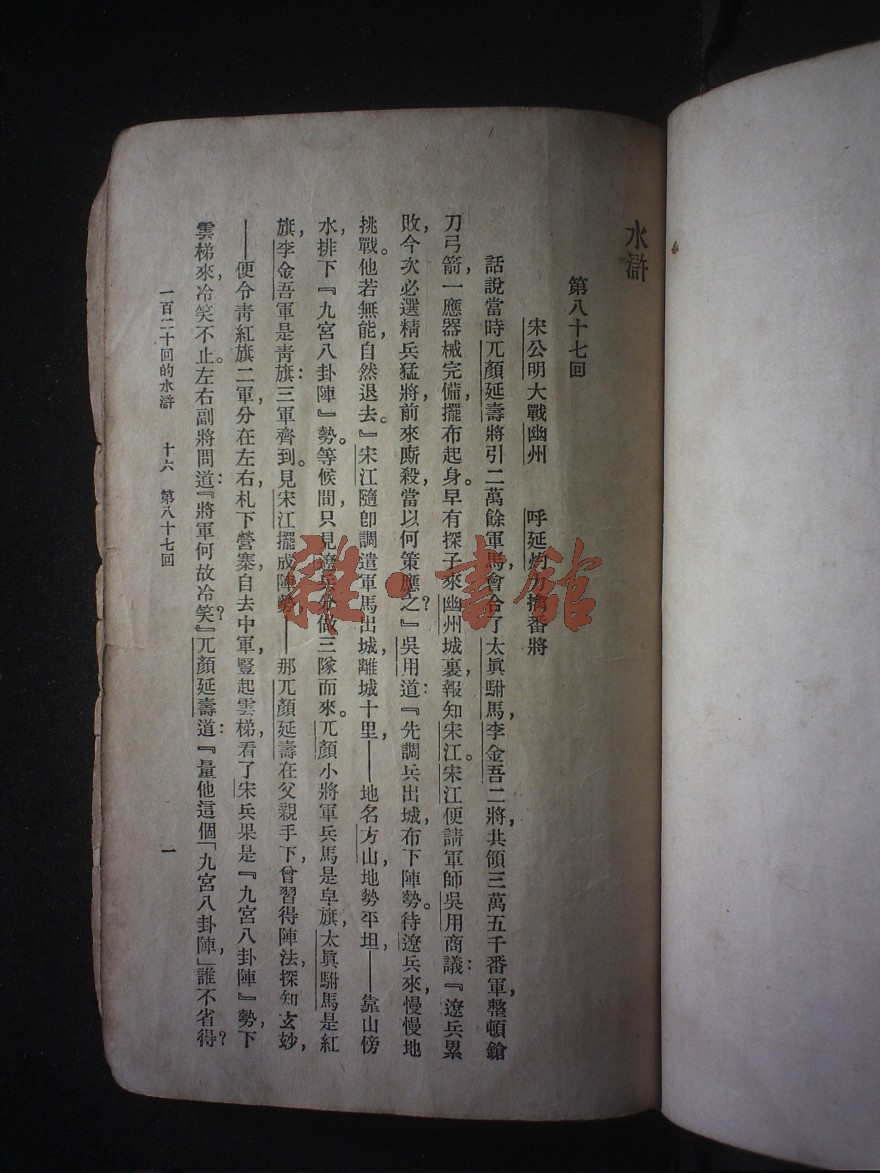 水滸
第八十七回
宋公明大戰幽州 呼延灼力擒番將
話說當時兀顏延壽將引二萬餘軍馬，會合了太眞駙馬，李金吾二將，共領三萬五千番軍，整頓鎗
刀弓箭，一應器械完備，擺布起身。早有探子來幽州城裏，報知宋江。宋江便請軍師吳用商議：『遼兵累
敗，今次必選精兵猛將，前來廝殺，當以何策應之？』吳用道：『先調兵出城，布下陣勢。待遼兵來，慢慢地
挑戰。他若無能，自然退去。』宋江隨卽調遣軍馬出城，離城十里——地名方山，地勢平坦——靠山傍
水，排下『九宮八卦陣』勢。等候間，只見遼兵分做三隊而來。兀顏小將軍兵馬是皁旗，太眞駙馬是紅
旗，李金吾軍是青旗：三軍齊到。見宋江擺成陣勢——那兀顏延壽在父親手下，曾習得陣法，探知玄妙，
——便令靑紅旗二軍，分在左右，札下營寨，自去中軍，豎起雲梯，看了宋兵果是『九宮八卦陣』勢，下
雲梯來，冷笑不止。左右副將問道：『將軍何故冷笑？』兀顏延壽道：『量他這個「九宮八卦陣，」誰不省得？
一百二十回的水滸 十六 第八十七回 一
雜·書館